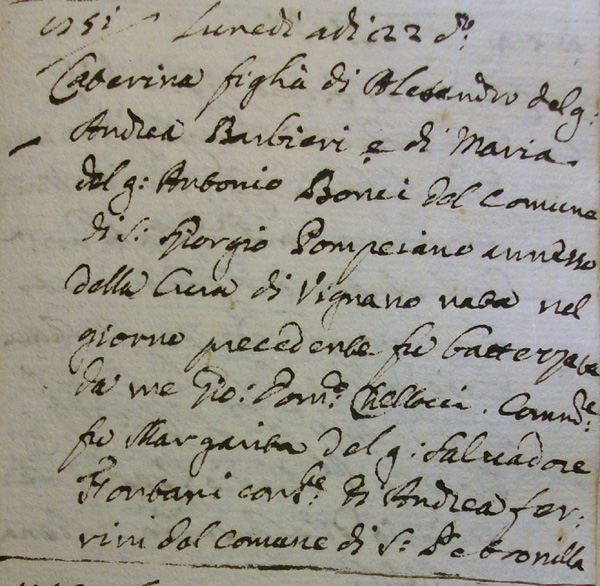 1751 Lunedi adi 22 d.o
Caterina figlia di Alesandro del q:
Andrea Barbieri e di Maria
del q: Antonio Bonci dal Comune
di S: Giorgio Pompeiano annesso
della Cura di Vignano nata nel
giorno precedente fu battezzata
da me Gio: Dom.co Chellocci. Comm.e:
fu Margarita del q: Salvadore
Fontani cons.te di Andrea fer:
rini dal Comune di S: Petronilla